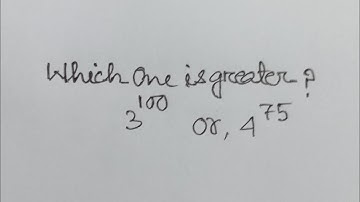 Which one is greater?
3^100 or, 4^75